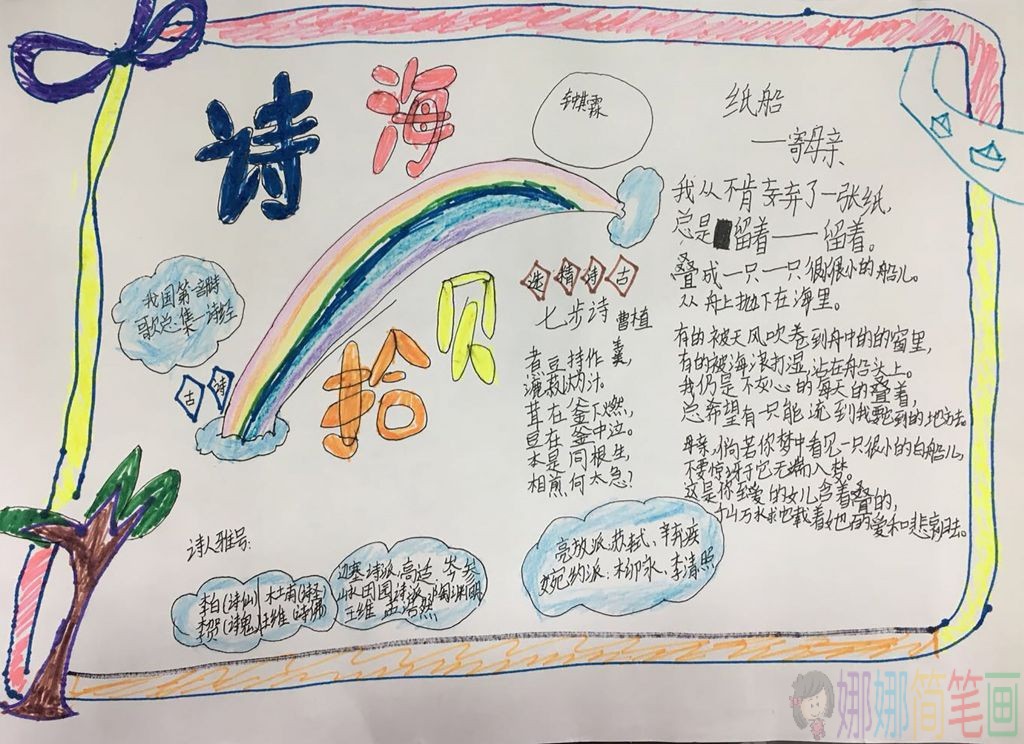 诗海拾贝
纸船
——寄母亲
我从不肯弃弃了一张纸,
总是留着——留着。
叠成一只一只很很小的船儿。
从舟上抛下在海里。
有的被天风吹卷到舟中的的窗里,
有的被海浪打湿,沾在船头上。
我仍是不灰心的每天的叠着,
总希望有一只能流到我要到的地方去。
母亲,倘若你梦中看见一只很小的白船儿,
不要惊讶于它无端入梦。
这是你至爱的女儿含着叠的,
万水也载着她的爱和悲哀归去。
我国第一部诗
歌总集——诗经
古诗
选精诗古
七步诗 曹植
煮豆持作羹,
漉菽以为汁。
茸在釜下燃,
豆在釜中泣。
本是同根生,
相煎何太急?
诗人雅号:
李白(诗仙) 杜甫(诗圣)
李贺(诗鬼) 王维(诗佛)
边塞诗派:高适 岑参
山水田园诗派:陶渊明
王维 孟浩然
亮放派:苏轼、辛弃疾
婉约派:柳永、李清照
娜娜简笔画